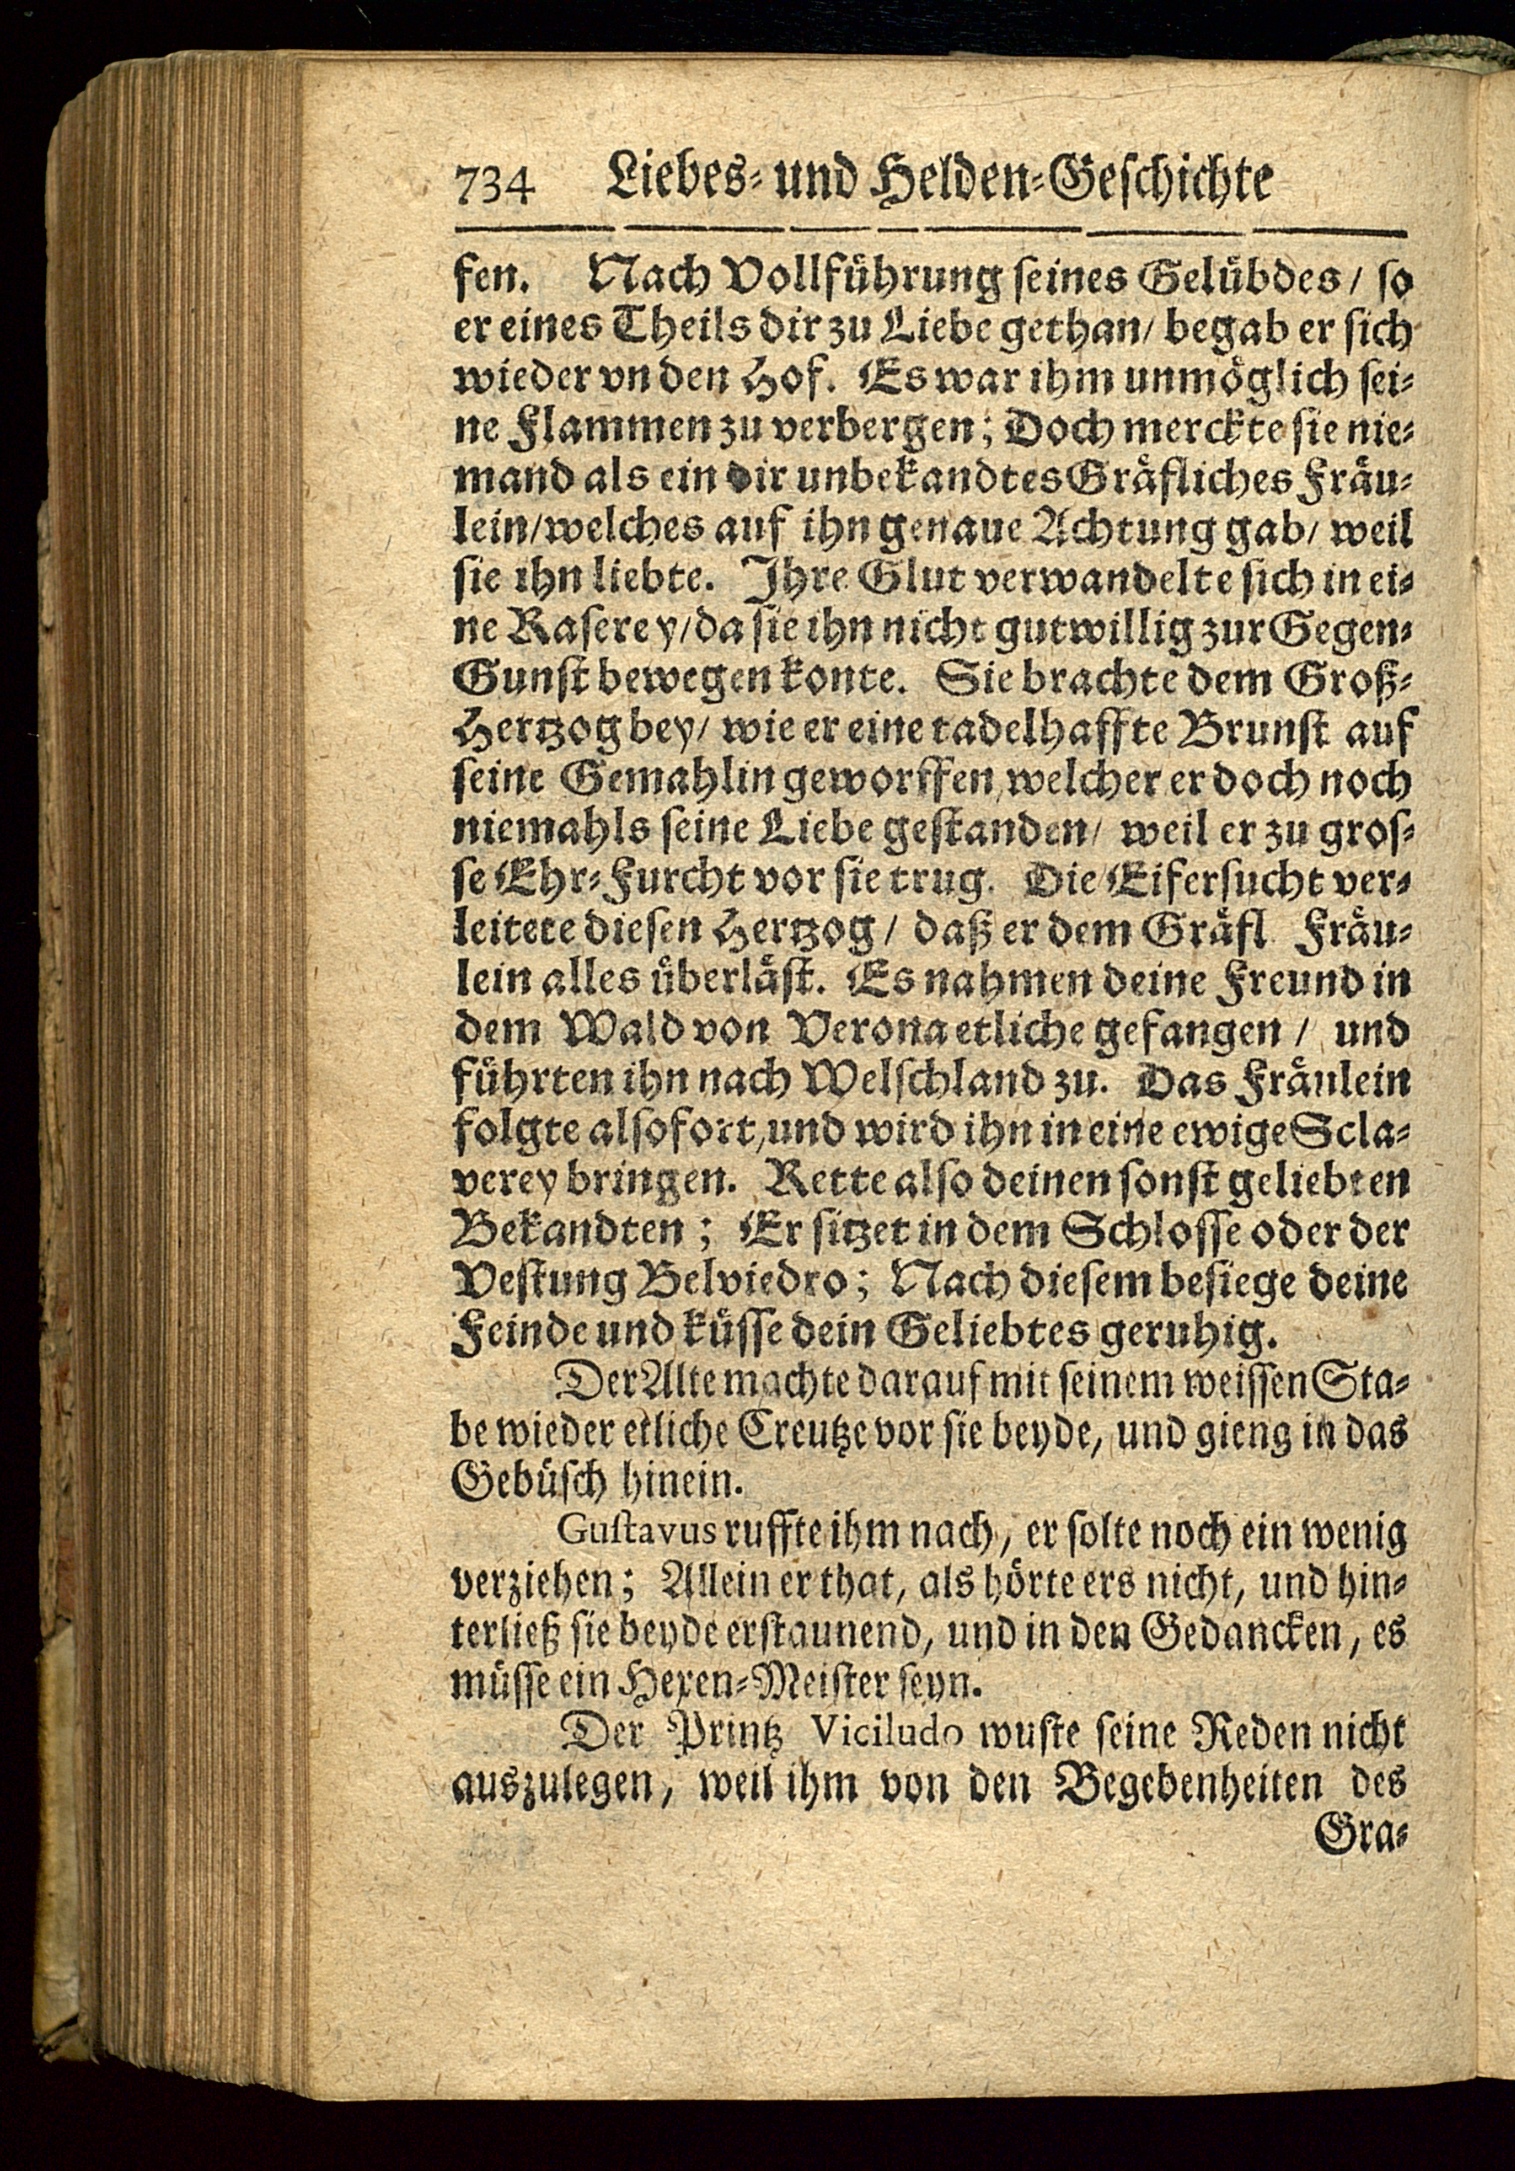 734 Liebes- und Helden-Geschichte
fen. Nach Vollführung seines Gelübdes / so
er eines Theils dir zu Liebe gethan / begab er sich
wieder vn den Hof. Es war ihm unmöglich sei-
ne Flammen zu verbergen; Doch merckte sie nie-
mand als ein dir unbekandtes Gräfliches Fräu-
lein / welches auf ihn genaue Achtung gab / weil
sie ihn liebte. Ihre Glut verwandelte sich in ei-
ne Raserey / da sie ihn nicht gutwillig zur Gegen-
Gunst bewegen konte. Sie brachte dem Groß-
Hertzog bey / wie er eine tadelhaffte Brunst auf
seine Gemahlin geworffen, welcher er doch noch
niemahls seine Liebe gestanden / weil er zu gros-
se Ehr-Furcht vor sie trug. Die Eifersucht ver-
leitete diesen Hertzog / daß er dem Gräfl. Fräu-
lein alles überläst. Es nahmen deine Freund in
dem Wald von Verona etliche gefangen / und
führten ihn nach Welschland zu. Das Fräulein
folgte alsofort, und wird ihn in eine ewige Scla-
verey bringen. Rette also deinen sonst geliebten
Bekandten; Er sitzet in dem Schlosse oder der
Vestung Belviedro; Nach diesem besiege deine
Feinde und küsse dein Geliebtes geruhig.
Der Alte machte darauf mit seinem weissen Sta-
be wieder etliche Creutze vor sie beyde, und gieng in das
Gebüsch hinein.
Gustavus ruffte ihm nach, er solte noch ein wenig
verziehen; Allein er that, als hörte ers nicht, und hin-
terließ sie beyde erstaunend, und in den Gedancken, es
müsse ein Hexen-Meister seyn.
Der Printz Viciludo wuste seine Reden nicht
auszulegen, weil ihm von den Begebenheiten des
Gra-